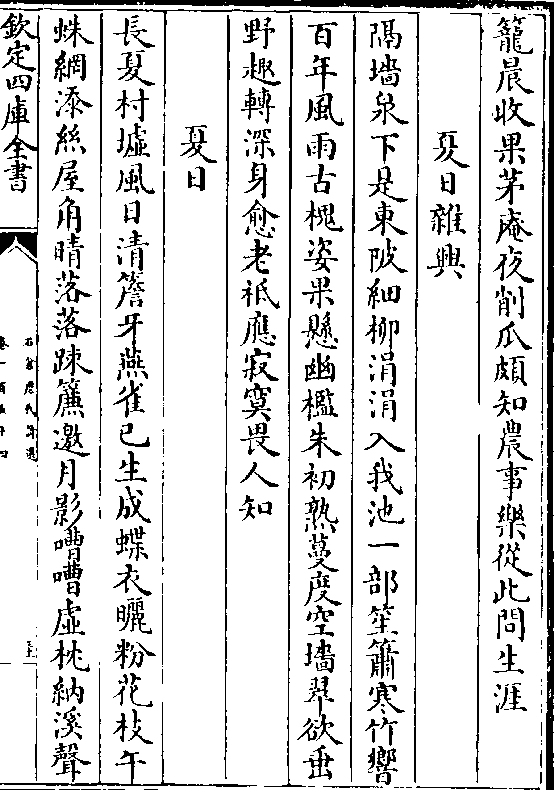 籠晨收果茅庵夜削瓜頗知農事樂從此問生涯
夏日雜興
隔墻泉下是東陂細柳涓涓入我池一部笙簫寒竹響
百年風雨古槐姿果懸幽檻朱初熟蔓度空墻翠欲垂
野趣轉深身愈老祗應寂寞畏人知
夏日
長夏村墟風日清簷牙燕雀已生成蝶衣曬粉花枝午
蛛網添絲屋角晴落落踈簾邀月影嘈嘈虛枕納溪聲
欽定四庫全書